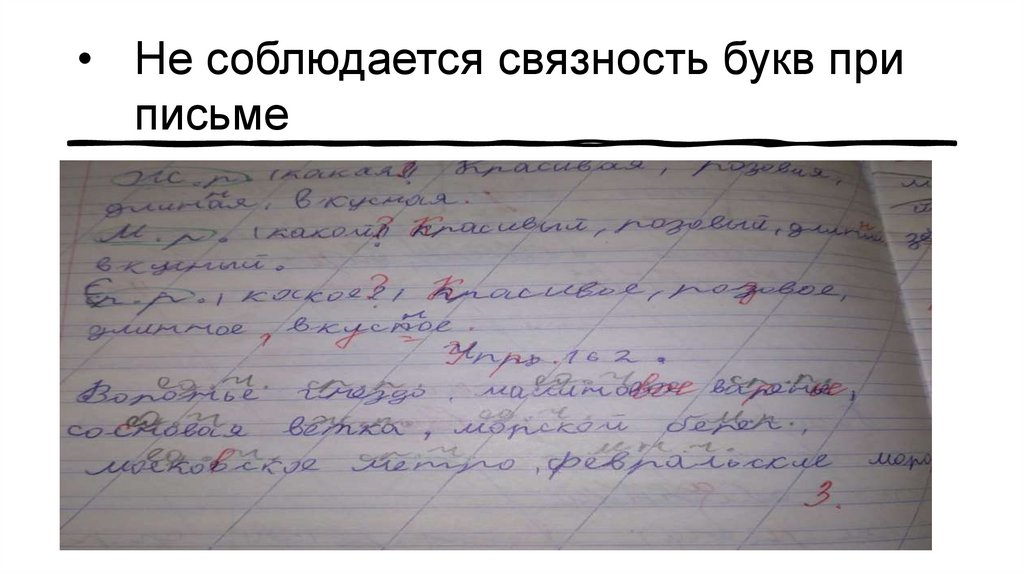 • Не соблюдается связность букв при
письме
Ж.р (какая? Красивая, розовая,
длинная, вкусная.
М.р. (какой? Красивый, розовый, длинный,
вкусный.
С.р., какое?, Красивое, розовое,
длинное, вкусное.
Упр. 162.
Воронье гнездо, малиновое варенье,
сосновая ветка, морской берег,
московское метро, февральские моро
3.